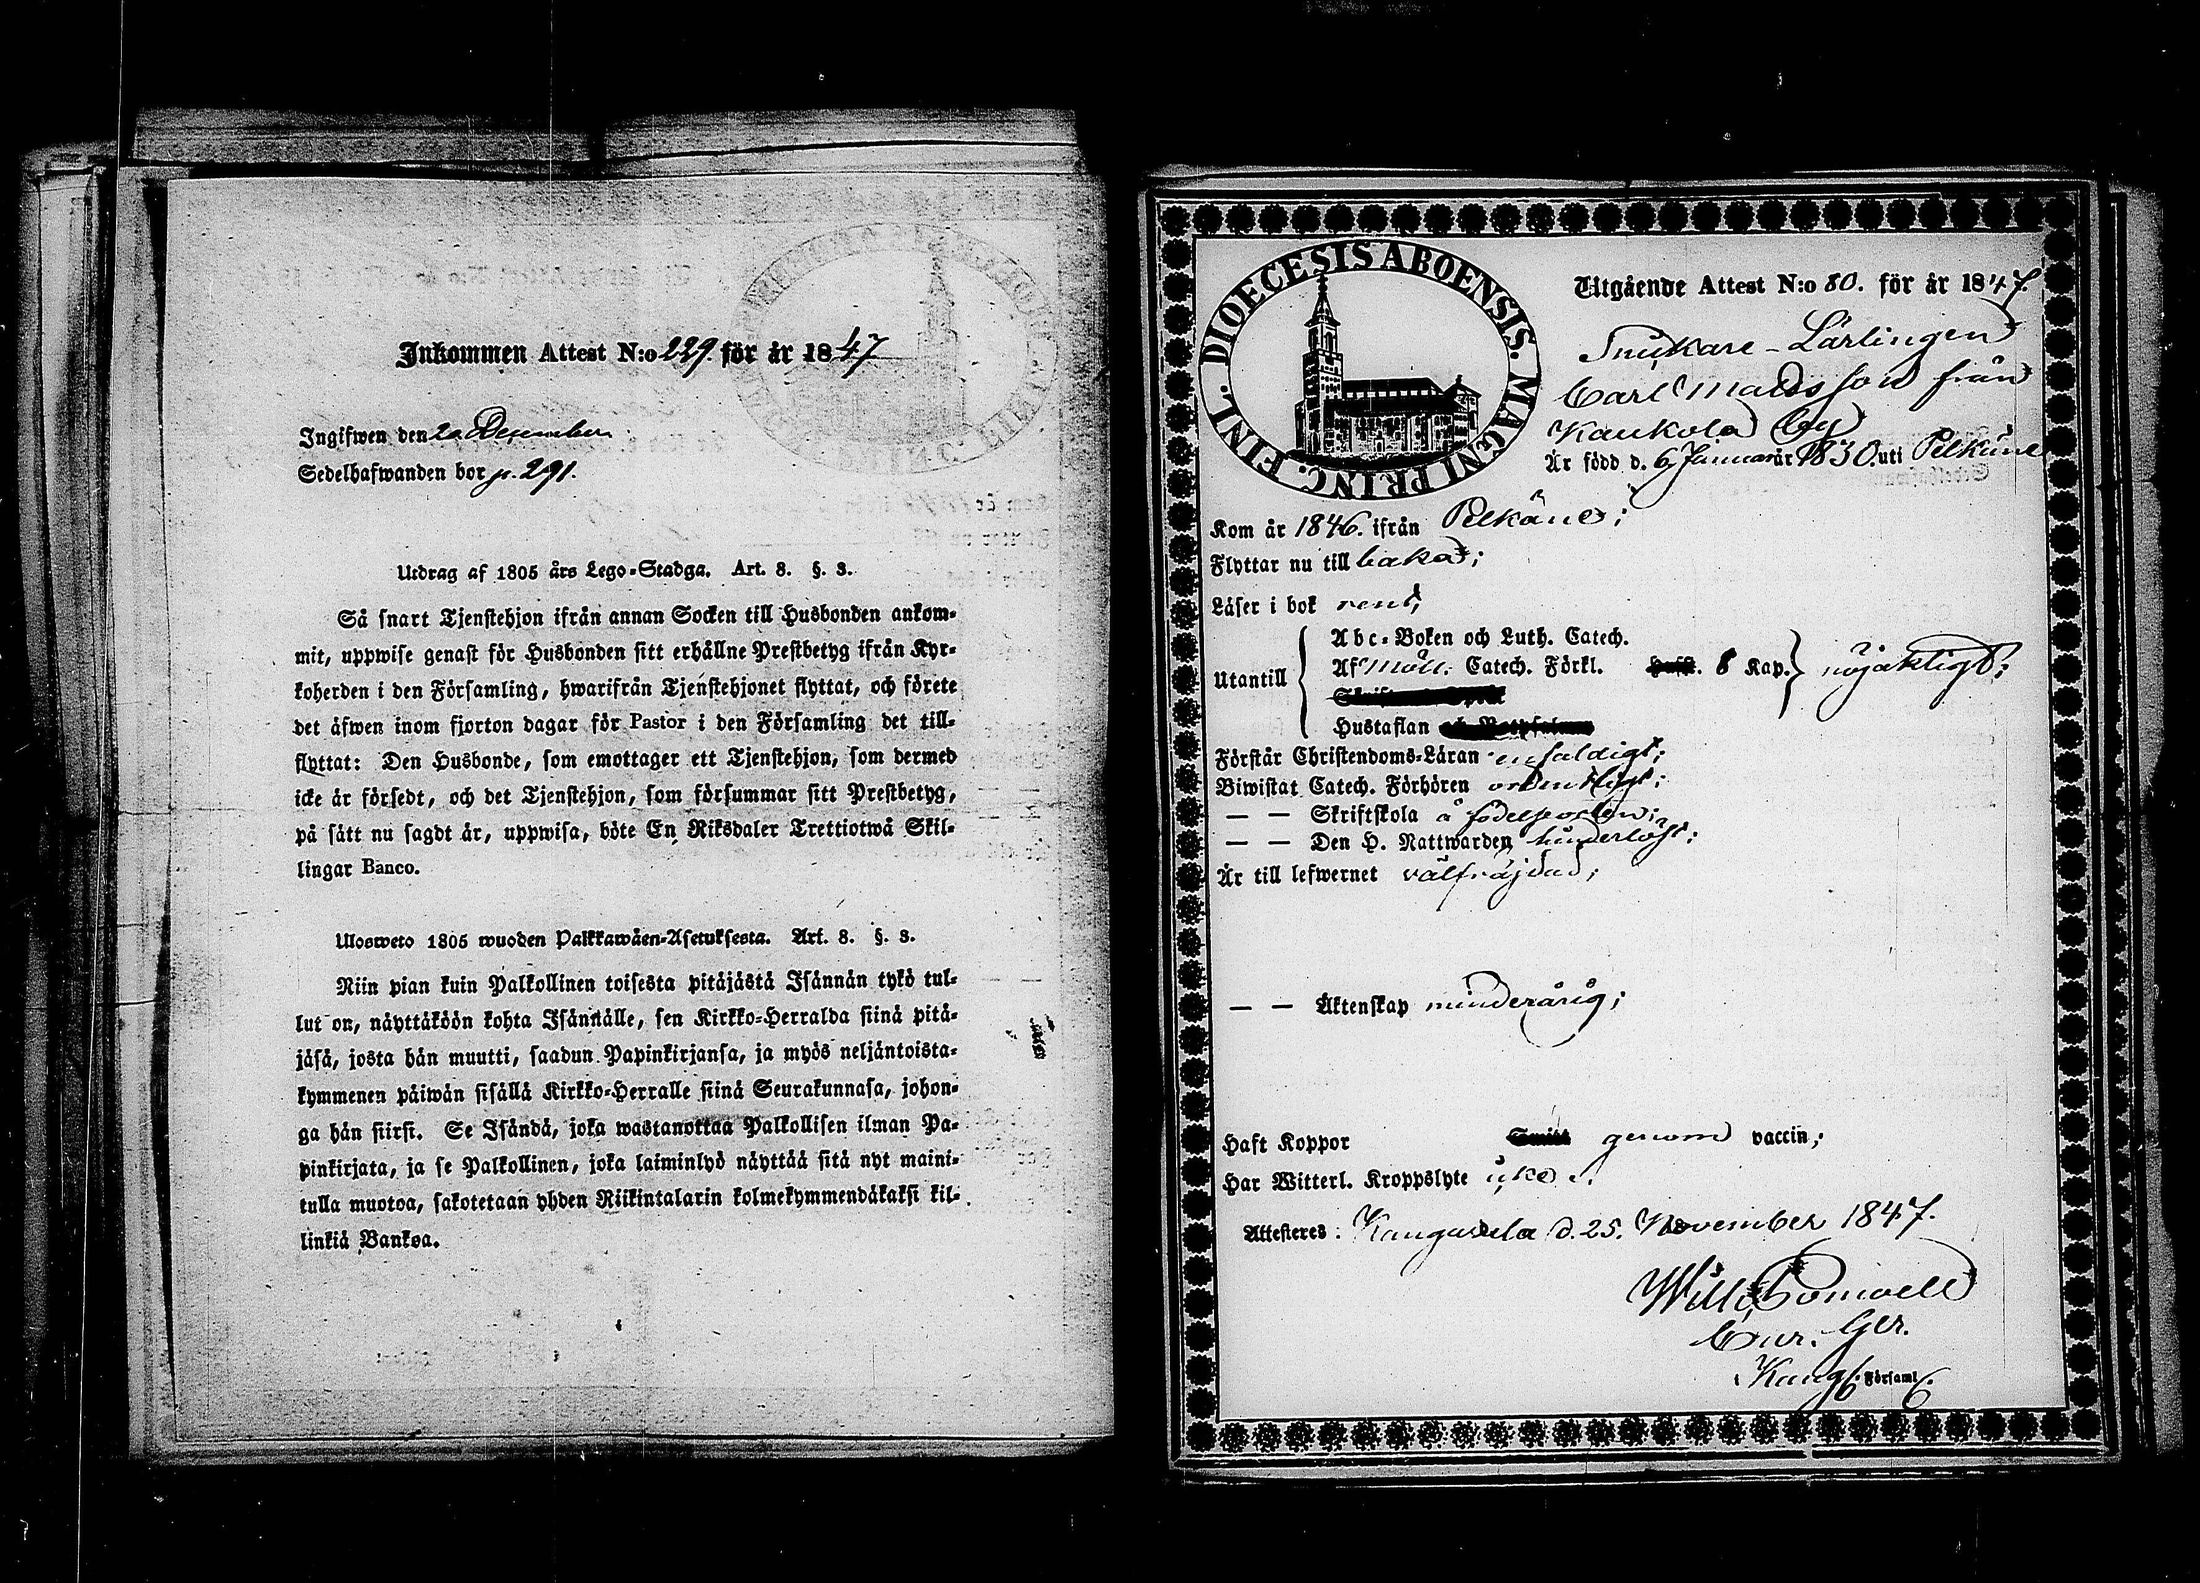 Inkommen Attest N:o 229. för år 1847
Ingifwen den 20 December
Sedelhafwanden bor p. 291.
Utdrag af 1805 års Lego-Stadga. Art. 8. §. 3.
Så snart Tjenstehjon ifrån annan Socken till Husbonden ankom-
mit, uppwise genast för Husbonden sitt erhållne Prestbetyg ifrån Kyr-
koherden i den Församling, hwarifrån Tjenstehjonet flyttat, och förete
det äfwen inom fjorton dagar för Pastor i den Församling det till-
flyttat: Den Husbonde, som emottager ett Tjenstehjon, som dermed
icke är försedt, och det Tjenstehjon, som försummar sitt Prestbetyg,
på sätt nu sagdt är, uppwisa, böte En Riksdaler Trettiotwå Skil-
lingar Banco.
Ulosweto 1805 wuoden Palkkawäen-Asetuksesta. Art. 8. §. 3.
Niin pian kuin Palkollinen toisesta pitäjästä Isännän tykö tul-
lut on, näyttäköön kohta Isännälle, sen Kirkko-Herralda siinä pitä-
jäsä, josta hän muutti, saadun Papinkirjansa, ja myös neljäntoista-
kymmenen päiwän sisällä Kirkko-Herralle siinä Seurakunnasa, johon-
ga hän siirsi. Se Isändä, joka wastanottaa Palkollisen ilman Pa-
pinkirjata, ja se Palkollinen, joka laiminlyö näyttää sitä nyt maini-
tulla muotoa, sakotetaan yhden Riikintalarin kolmekymmendäkaksi kil-
linkiä Bankoa.
DIOECESIS ABOENSIS. MAGNI PRINC. FINL.
Utgående Attest N:o 80. för år 1847.
Snickare-Lärlingen
Carl Matsson från
Kaukola by
Är född d. 6 Januari år 1830. uti Pelkäne
Kom år 1846. ifrån Pelkäne;
Flyttar nu till baka;
Läser i bok rent;
Utantill
Abc-Boken och Luth. Catech.
Af Möll. Catech. Förkl. 8 Kap.
nöjaktigt;
Hustaflan
Förstår Christendoms-Läran enfaldigt;
Biwistat Catech. Förhören ordentligt;
— — Skriftskola å födelseorten;
— — Den H. Nattwarden hinderlöst;
Är till lefwernet välfräjdad;
— — Äktenskap minderårig;
Haft Koppor genom vaccin;
Har Witterl. Kroppslyte icke.
Attesteres: Kangasala d. 25. November 1847.
Will.
Cur. Ger.
i Kang. Församl.